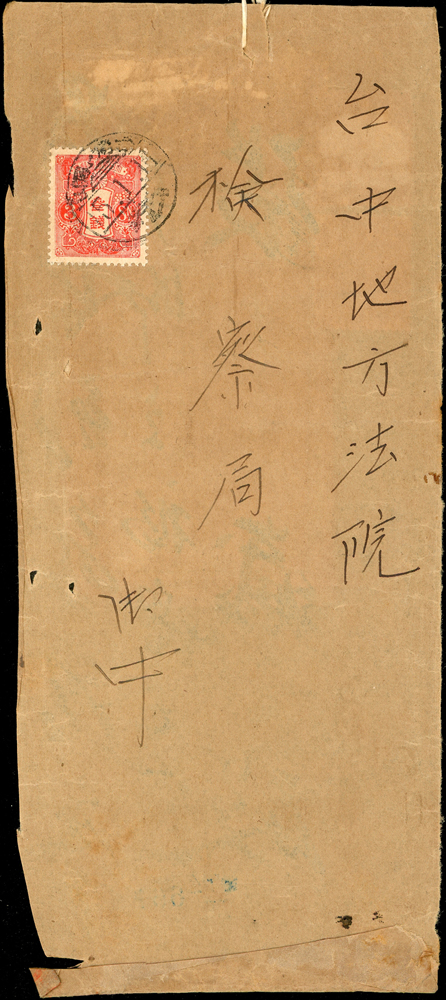 台中地方法院
検察局
御中